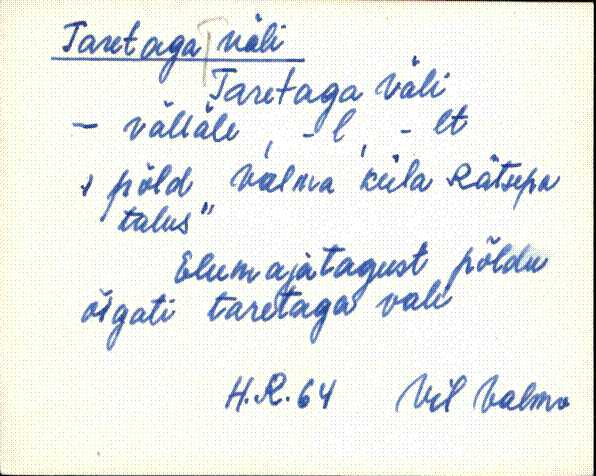 Taretaga väli
Taretaga väli
– väĺläle, -l, -lt
„põld Valma küla Rätsepa
talus"
Elumajatagust põldu
õigati taretaga väli
H.R. 64 Vil Valma